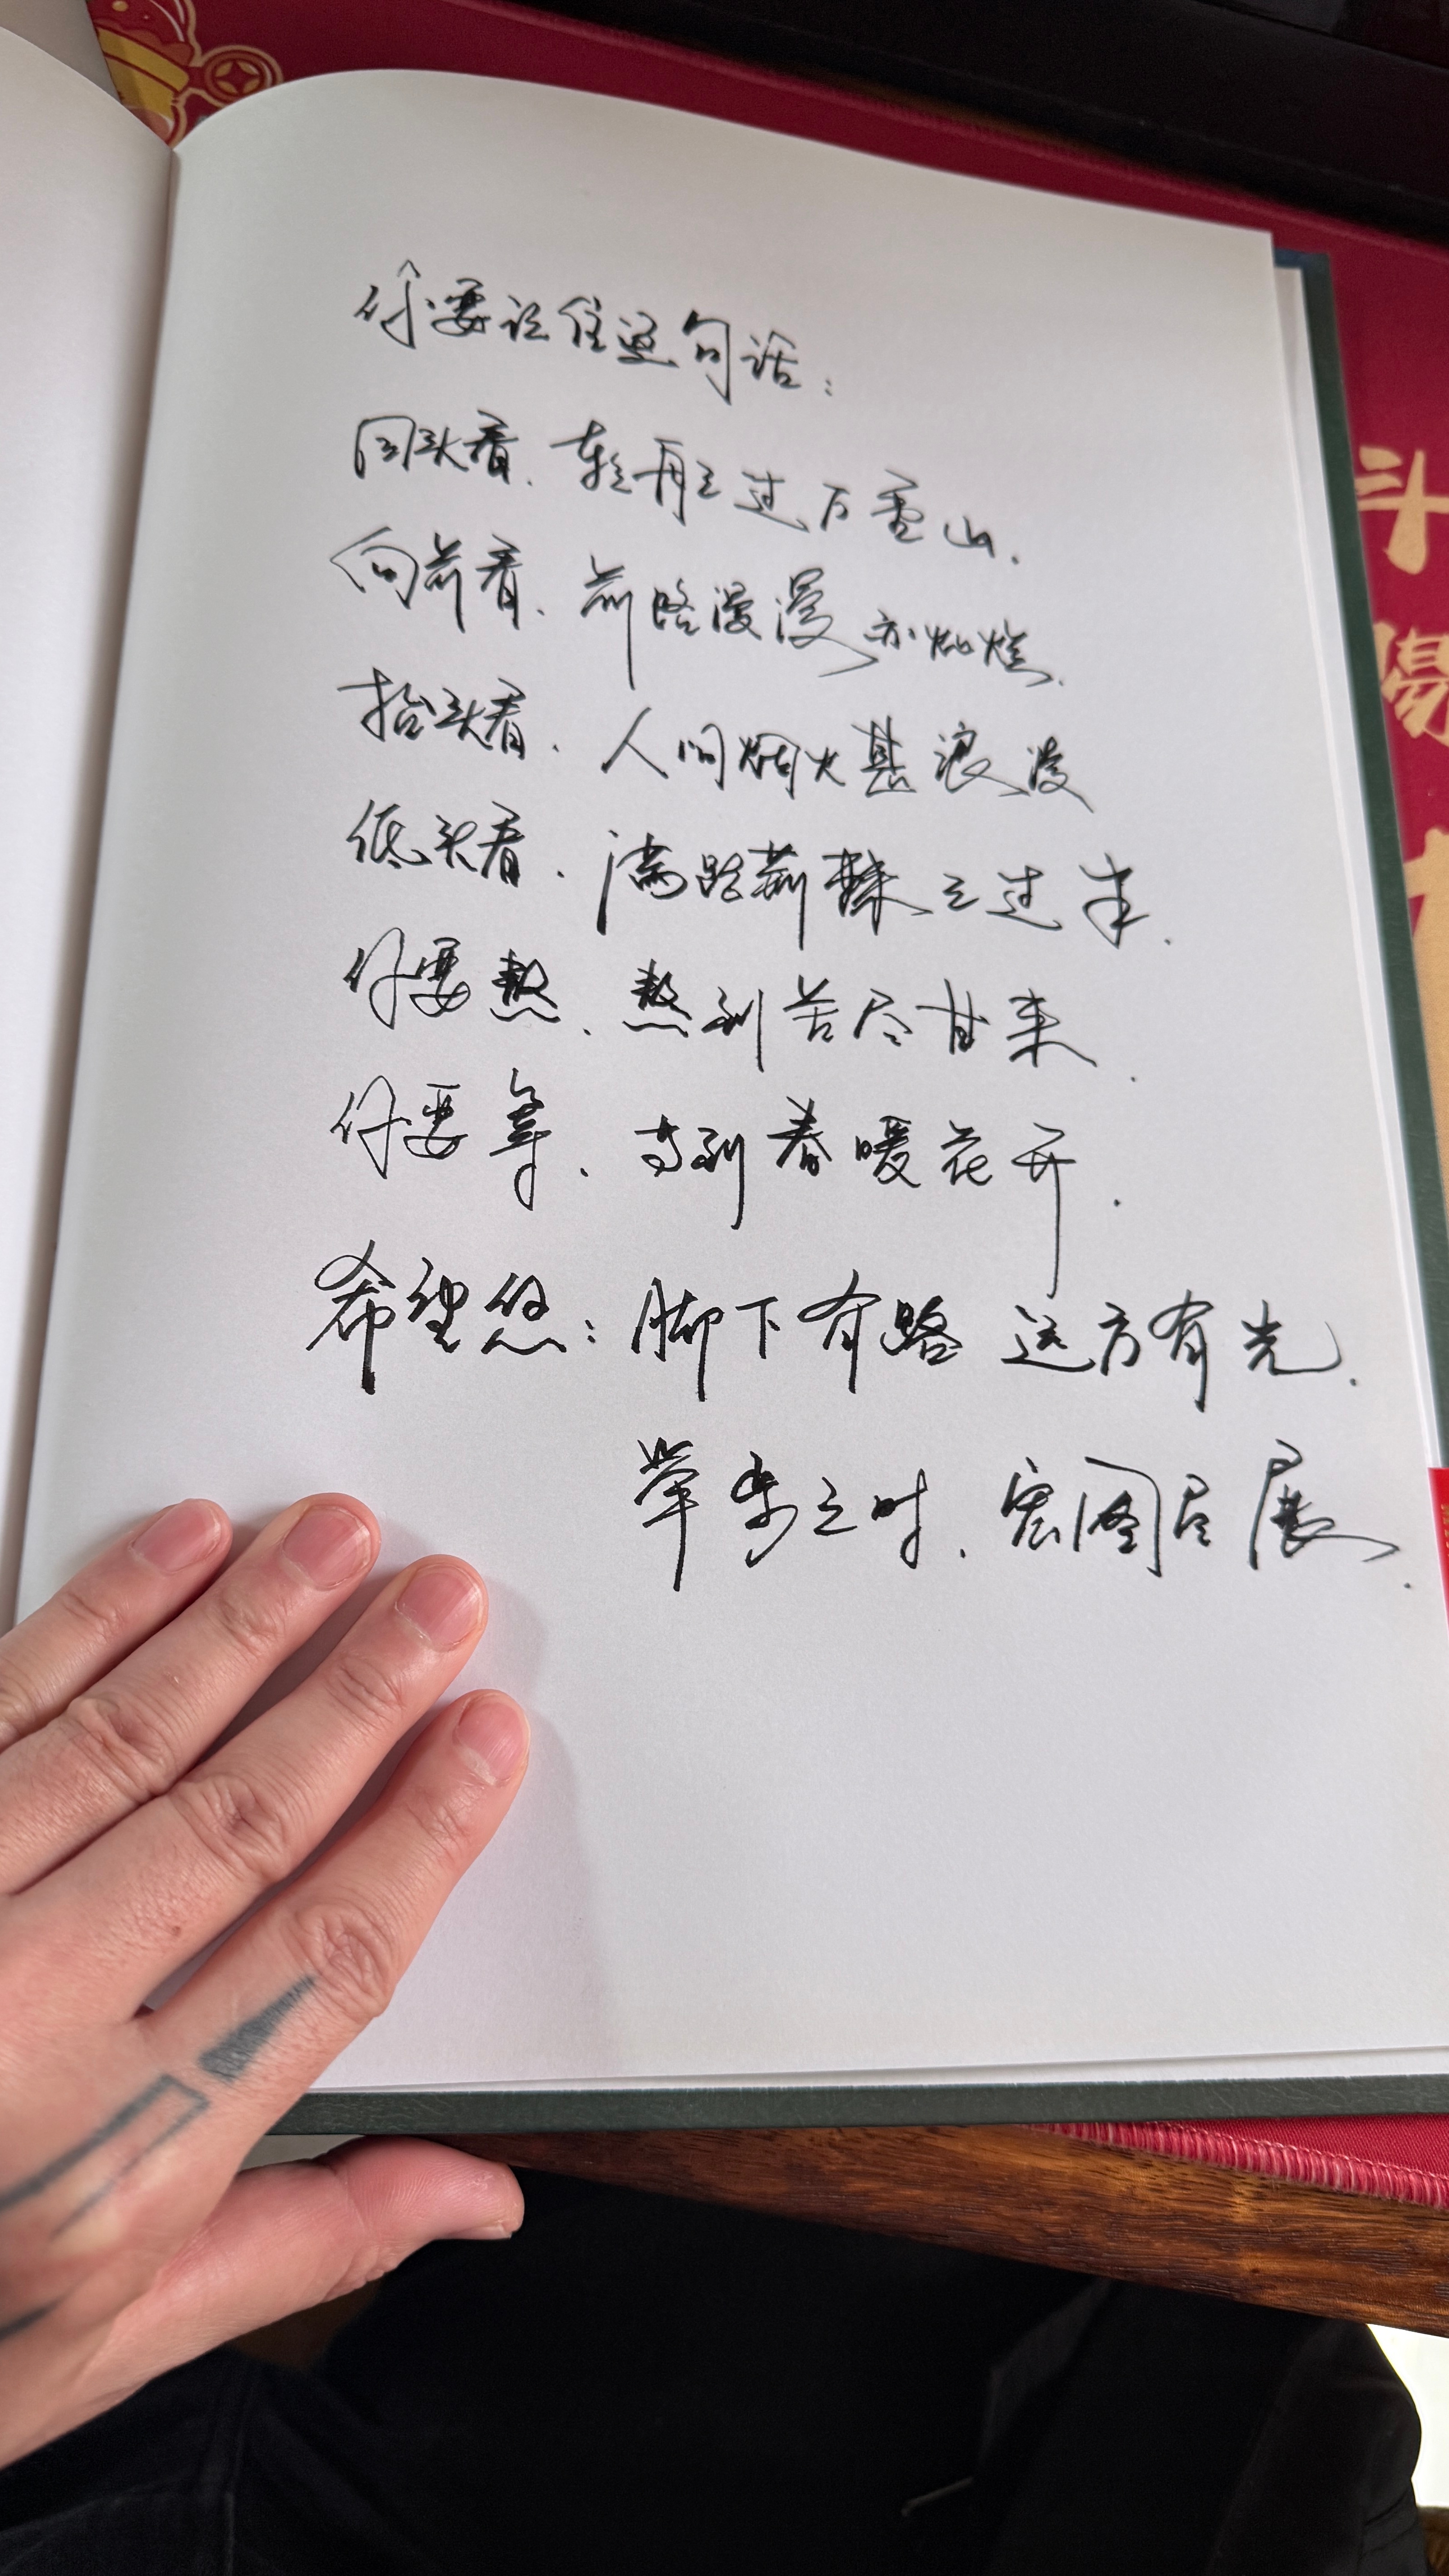 你要记住这句话：
回头看、轻舟已过万重山.
向前看、前路漫漫亦灿烂.
抬头看、人间烟火甚浪漫
低头看、满路荆棘已过半.
你要熬、熬到苦尽甘来.
你要等、等到春暖花开.
希望您：脚下有路 远方有光.
举步之时、宏图尽展.
斗